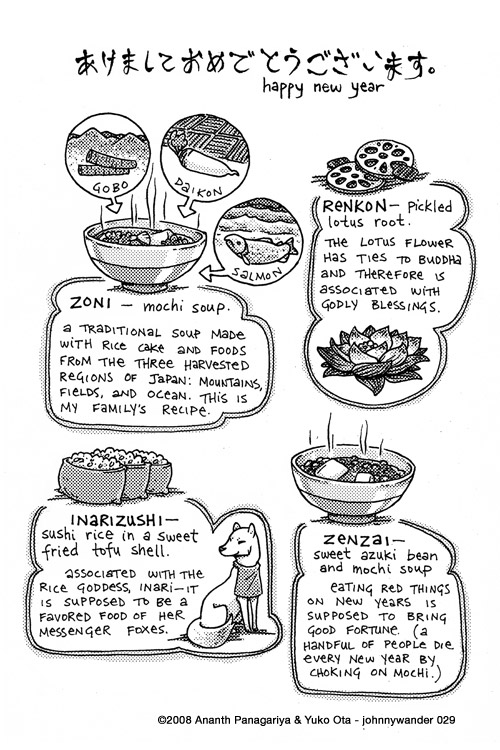 あけましておめでとうございます。
happy new year
GOBO
DAIKON
SALMON
ZONI – mochi soup.
a TRADITIONAL SOUP MADE
WITH RICE CAKE AND FOODS
FROM THE THREE HARVESTED
REGIONS OF JAPAN: MOUNTAINS,
FIELDS, AND OCEAN. THIS IS
MY FAMILY'S RECIPE.
RENKON – pickled
lotus root.
THE LOTUS FLOWER
HAS TIES TO BUDDHA
AND THEREFORE IS
ASSOCIATED WITH
GODLY BLESSINGS.
INARIZUSHI –
sushi rice in a sweet
fried tofu shell.
ASSOCIATED WITH THE
RICE GODDESS, INARI – IT
IS SUPPOSED TO BE A
FAVORED FOOD OF HER
MESSENGER FOXES.
ZENZAI –
sweet azuki bean
and mochi soup
EATING RED THINGS
ON NEW YEARS IS
SUPPOSED TO BRING
GOOD FORTUNE. (a
HANDFUL OF PEOPLE DIE
EVERY NEW YEAR BY
CHOKING ON MOCHI.)
©2008 Ananth Panagariya & Yuko Ota - johnnywander 029